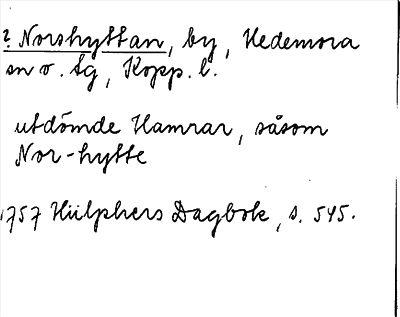 ? Norshyttan, by, Hedemora
sn o. tg, Kopp. l.
utdömde Hamrar, såsom
Nor-hytte
1757 Hülphers Dagbok, s. 545.